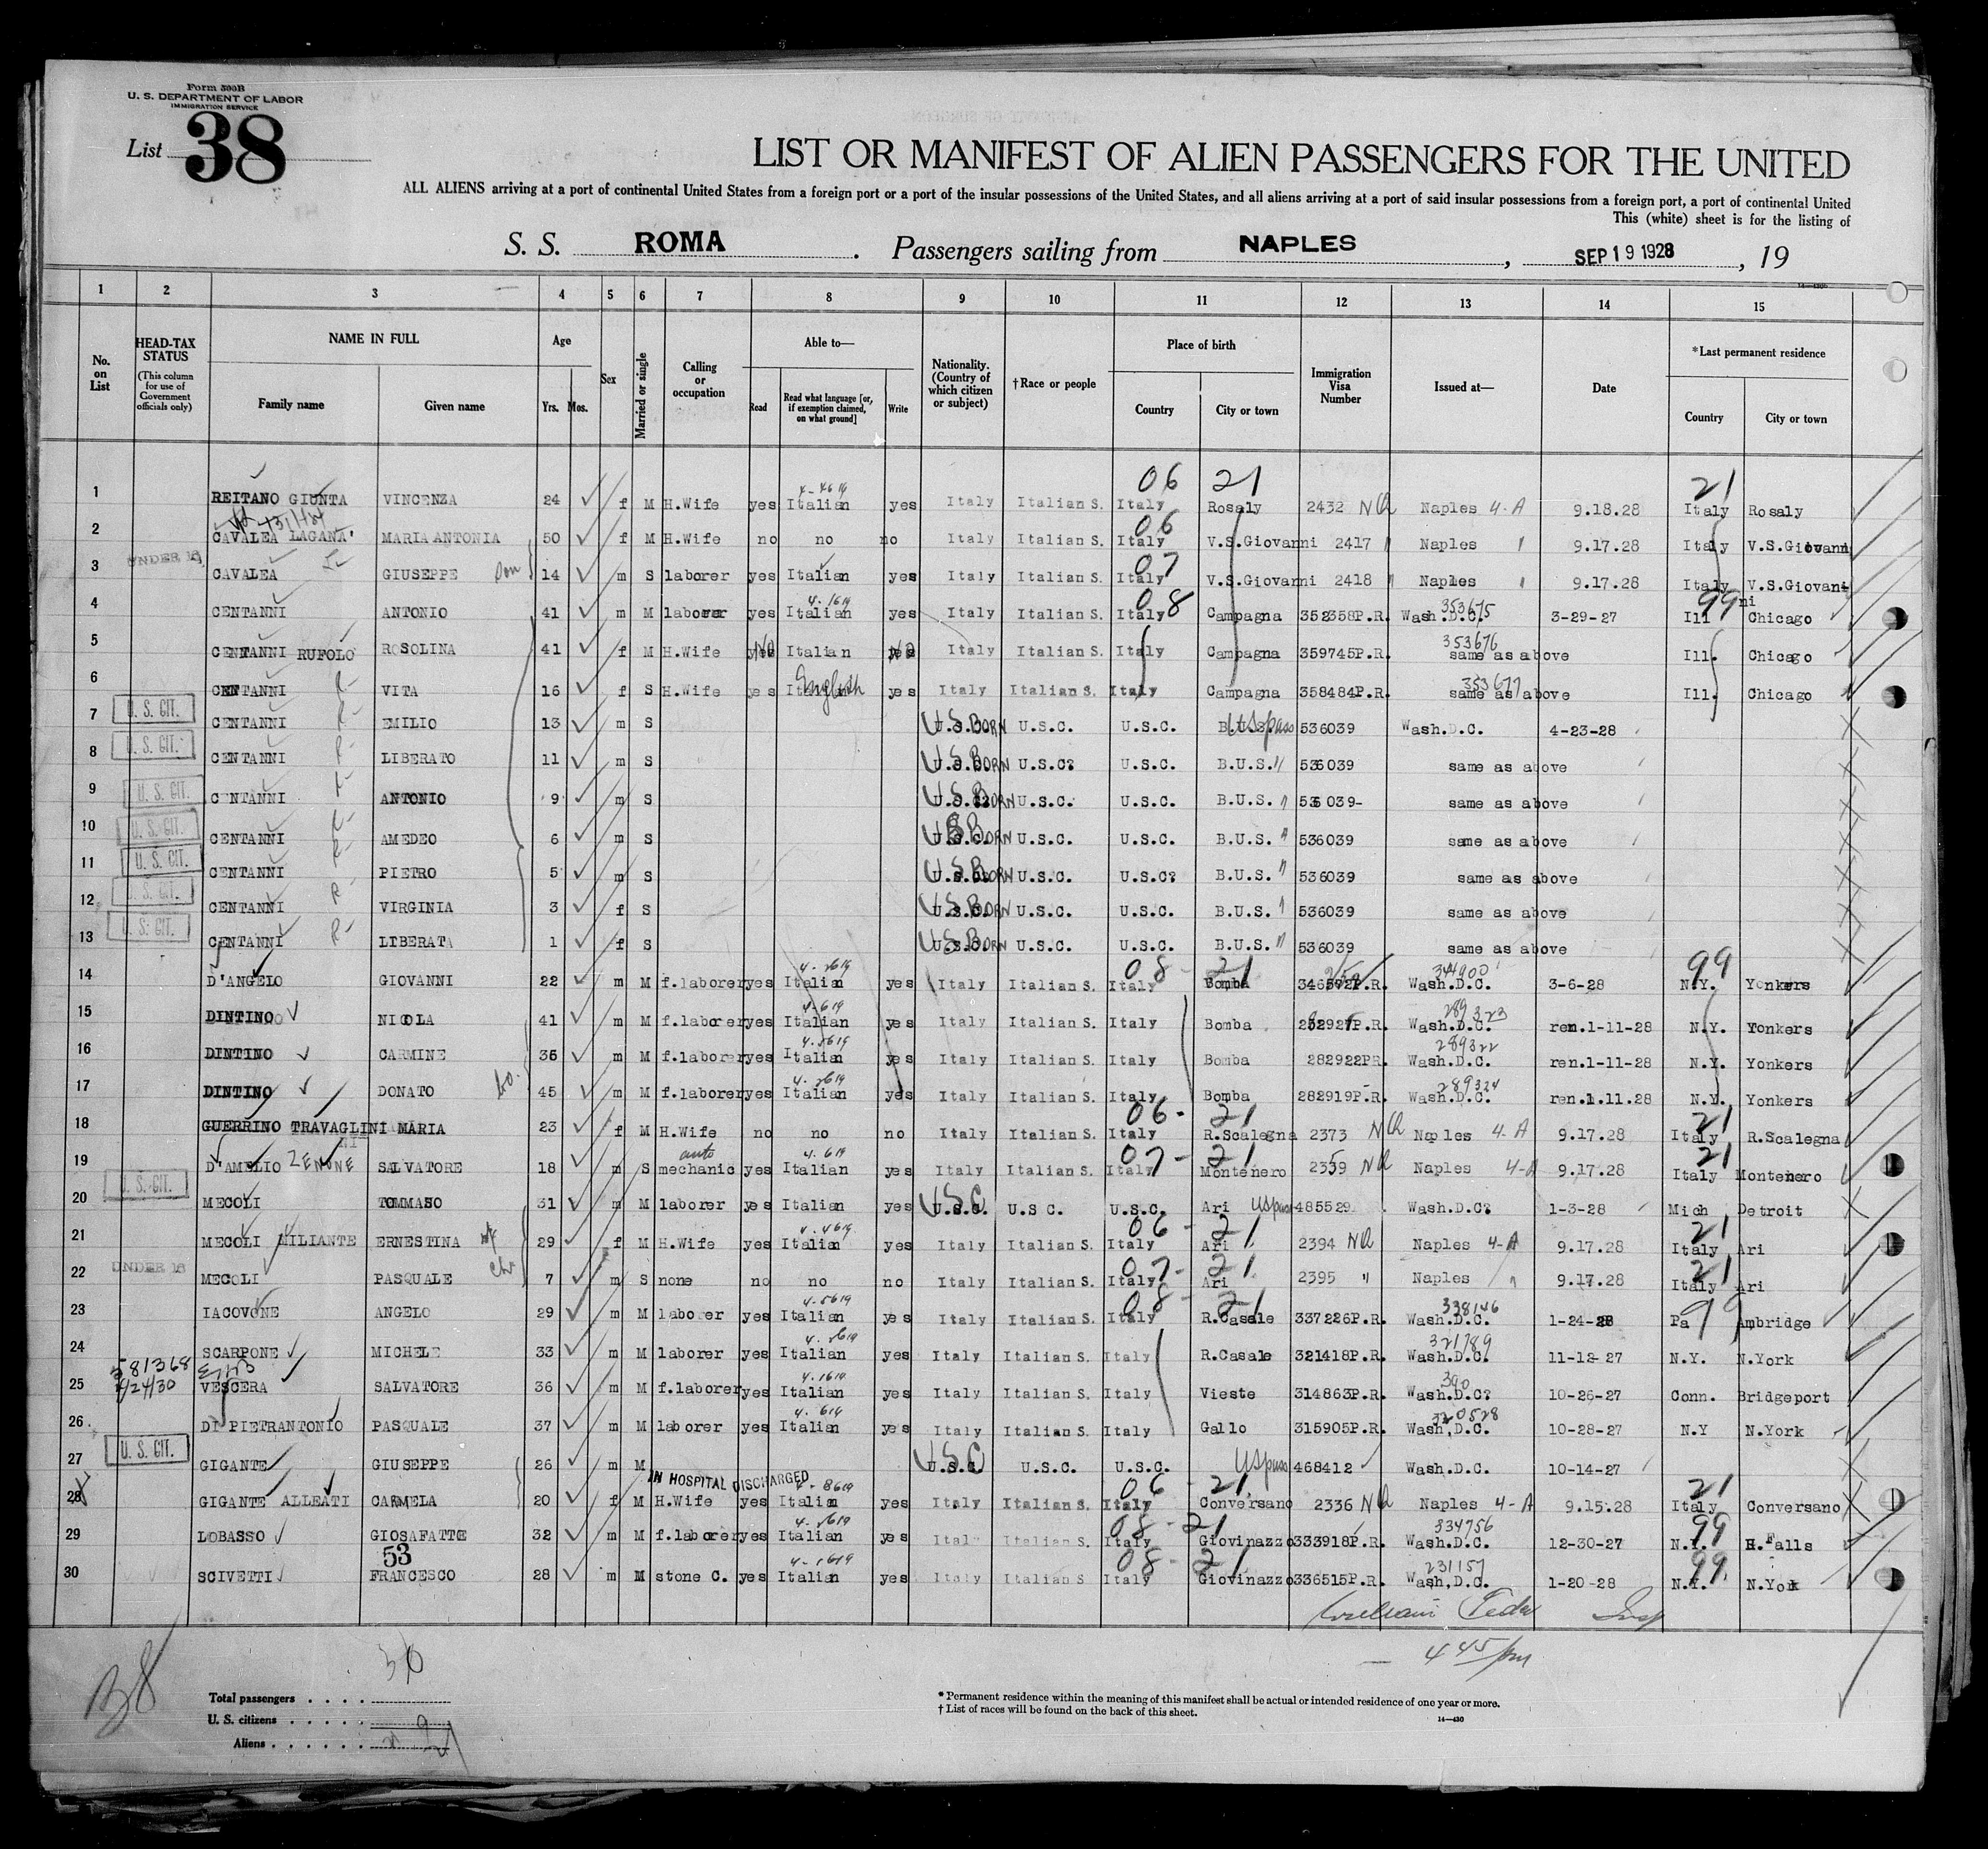 Form 500B
U. S. DEPARTMENT OF LABOR
IMMIGRATION SERVICE
List 38
LIST OR MANIFEST OF ALIEN PASSENGERS FOR THE UNITED
ALL ALIENS arriving at a port of continental United States from a foreign port or a port of the insular possessions of the United States, and all aliens arriving at a port of said insular possessions from a foreign port, a port of continental United
This (white) sheet is for the listing of
S. S. ROMA . Passengers sailing from NAPLES , SEP 19 1928 , 19
1 2 3 4 5 6 7 8 9 10 11 12 13 14 15
No. on List
HEAD-TAX STATUS (This column for use of Government officials only)
NAME IN FULL Family name Given name
Age Yrs. Mos.
Sex
Married or single
Calling or occupation
Able to— Read Read what language [or, if exemption claimed, on what ground] Write
Nationality. (Country of which citizen or subject)
† Race or people
Place of birth Country City or town
Immigration Visa Number
Issued at—
Date
*Last permanent residence Country City or town
06 21 21
1 REITANO GIUNTA VINCENZA 24 f M H.Wife yes Italian yes Italy Italian S. Italy Rosaly 2432 NQ Naples 4-A 9.18.28 Italy Rosaly
06
2 CAVALEA LAGANA' MARIA ANTONIA 50 f M H.Wife no no no Italy Italian S. Italy V.S.Giovanni 2417 " Naples 9.17.28 Italy V.S.Giovanni
07
3 UNDER 16 CAVALEA GIUSEPPE son 14 m S laborer yes Italian yes Italy Italian S. Italy V.S.Giovanni 2418 " Naples 9.17.28 Italy V.S.Giovanni
08 353675 99
4 CENTANNI ANTONIO 41 m M laborer yes Italian yes Italy Italian S. Italy Campagna 352358P.R. Wash.D.C. 3-29-27 Ill Chicago
353676
5 CENTANNI RUFOLO ROSOLINA 41 f M H.Wife No Italian No Italy Italian S. Italy Campagna 359745P.R. same as above Ill. Chicago
353677
6 CENTANNI VITA 16 f S H.Wife yes English yes Italy Italian S. Italy Campagna 358484P.R. same as above Ill. Chicago
7 U. S. CIT. CENTANNI EMILIO 13 m S U.S.BORN U.S.C. U.S.C. US pass 536039 Wash.D.C. 4-23-28
8 U. S. CIT. CENTANNI LIBERATO 11 m S U.S.BORN U.S.C? U.S.C. B.U.S. " 536039 same as above
9 U. S. CIT. CENTANNI ANTONIO 9 m S U.S.BORN U.S.C. U.S.C. B.U.S. " 536039- same as above
10 U. S. CIT. CENTANNI AMEDEO 6 m S U.S.BORN U.S.C. U.S.C. B.U.S. " 536039 same as above
11 U. S. CIT. CENTANNI PIETRO 5 m S U.S.BORN U.S.C. U.S.C? B.U.S. " 536039 same as above
12 U. S. CIT. CENTANNI VIRGINIA 3 f S U.S.BORN U.S.C. U.S.C. B.U.S. " 536039 same as above
13 U. S. CIT. CENTANNI LIBERATA 1 f S U.S.BORN U.S.C. U.S.C. B.U.S. " 536039 same as above
08 - 21 344900 99
14 D'ANGELO GIOVANNI 22 m M f.laborer yes Italian yes Italy Italian S. Italy Bomba Wash.D.C. 3-6-28 N.Y. Yonkers
289323
15 DINTINO NICOLA 41 m M f.laborer yes Italian yes Italy Italian S. Italy Bomba Wash.D.C. ren.1-11-28 N.Y. Yonkers
289322
16 DINTINO CARMINE 36 m M f.laborer yes Italian yes Italy Italian S. Italy Bomba 282922PR. Wash.D.C. ren.1-11-28 N.Y. Yonkers
289324
17 DINTINO DONATO 45 m M f.laborer yes Italian yes Italy Italian S. Italy Bomba 282919P.R. Wash.D.C. ren.1.11.28 N.Y. Yonkers
06 - 21 21
18 GUERRINO TRAVAGLINI MARIA 23 f M H.Wife no no no Italy Italian S. Italy R.Scalegna 2373 NQ Naples 4-A 9.17.28 Italy R.Scalegna
auto 07 - 21 21
19 D'AMELIO ZENONE SALVATORE 18 m S mechanic yes Italian yes Italy Italian S. Italy Montenero 2359 NQ Naples 4-A 9.17.28 Italy Montenero
20 U. S. CIT. MECOLI TOMMASO 31 m M laborer yes Italian yes U.S.C. U.S C. U.S.C. Ari US pass 485529 Wash.D.C? 1-3-28 Mich Detroit
06 - 21 21
21 MECOLI MILIANTE ERNESTINA wf 29 f M H.Wife yes Italian yes Italy Italian S. Italy Ari 2394 NQ Naples 4-A 9.17.28 Italy Ari
07 - 21 21
22 UNDER 16 MECOLI PASQUALE ch 7 m S none no no no Italy Italian S. Italy Ari 2395 " Naples " 9.17.28 Italy Ari
08 - 21 338146 99
23 IACOVONE ANGELO 29 m M laborer yes Italian yes Italy Italian S. Italy R.Casale 337226P.R. Wash.D.C. 1-24-28 Pa Ambridge
321789
24 SCARPONE MICHELE 33 m M laborer yes Italian yes Italy Italian S. Italy R.Casale 321418P.R. Wash.D.C. 11-12-27 N.Y. N.York
581368
25 4/24/30 VESCERA SALVATORE 36 m M f.laborer yes Italian yes Italy Italian S. Italy Vieste 314863P.R. Wash.D.C? 10-26-27 Conn. Bridgeport
320528
26 DI PIETRANTONIO PASQUALE 37 m M laborer yes Italian yes Italy Italian S. Italy Gallo 315905P.R. Wash,D.C. 10-28-27 N.Y N.York
27 U. S. CIT. GIGANTE GIUSEPPE 26 m M U.S.C U.S.C. U.S.C. US pass 468412 Wash.D.C. 10-14-27
IN HOSPITAL DISCHARGED 06 - 21 21
28 GIGANTE ALLEATI CARMELA 20 f M H.Wife yes Italian yes Italy Italian S. Italy Conversano 2336 NQ Naples 4-A 9.15.28 Italy Conversano
08 - 21 334756 99
29 LOBASSO GIOSAFATTE 32 m M f.laborer yes Italian yes Italy Italian S. Italy Giovinazzo 333918P.R. Wash.D.C. 12-30-27 N.Y. H.Falls
53 08 - 21 231157 99
30 SCIVETTI FRANCESCO 28 m M stone C. yes Italian yes Italy Italian S. Italy Giovinazzo 336515P.R. Wash,D.C. 1-20-28 N.Y. N.York
4 45 pm
38
Total passengers . . . . 30
U. S. citizens . . . . . 9
Aliens . . . . . . 21
* Permanent residence within the meaning of this manifest shall be actual or intended residence of one year or more.
† List of races will be found on the back of this sheet.
14—430